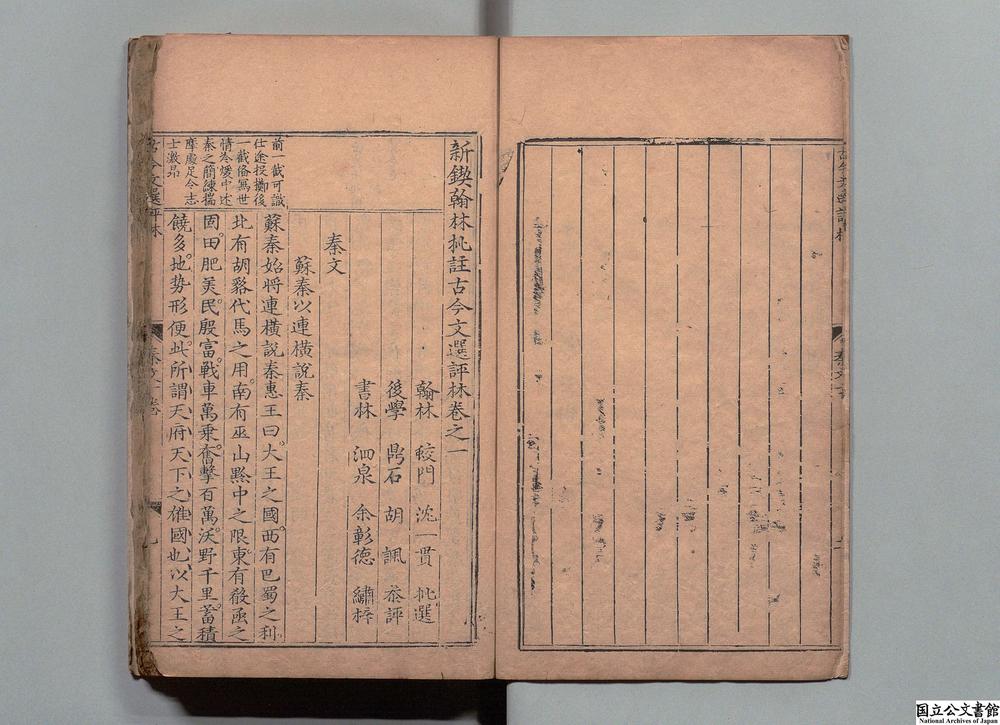 新鍥翰林批註古今文選評林卷之一
翰林 蛟門 沈一貫 批選
後學 鼎石 胡 諷 叅評
書林 泗泉 余彰德 繡梓
秦文
蘇秦以連橫說秦
蘇秦始將連橫說秦惠王曰大王之國西有巴蜀之利
北有胡貉代馬之用南有巫山黔中之限東有殽函之
固田肥美民殷富戰車萬乘奮擊百萬沃野千里蓄積
饒多地势形便此所謂天府天下之雄國也以大王之
前一截可識
仕途捉摸後
一截俗寫世
情冷煖中述
秦之簡練揣
摩處足令志
士激昂
古今文選評林
國立公文書館
National Archives of Japan